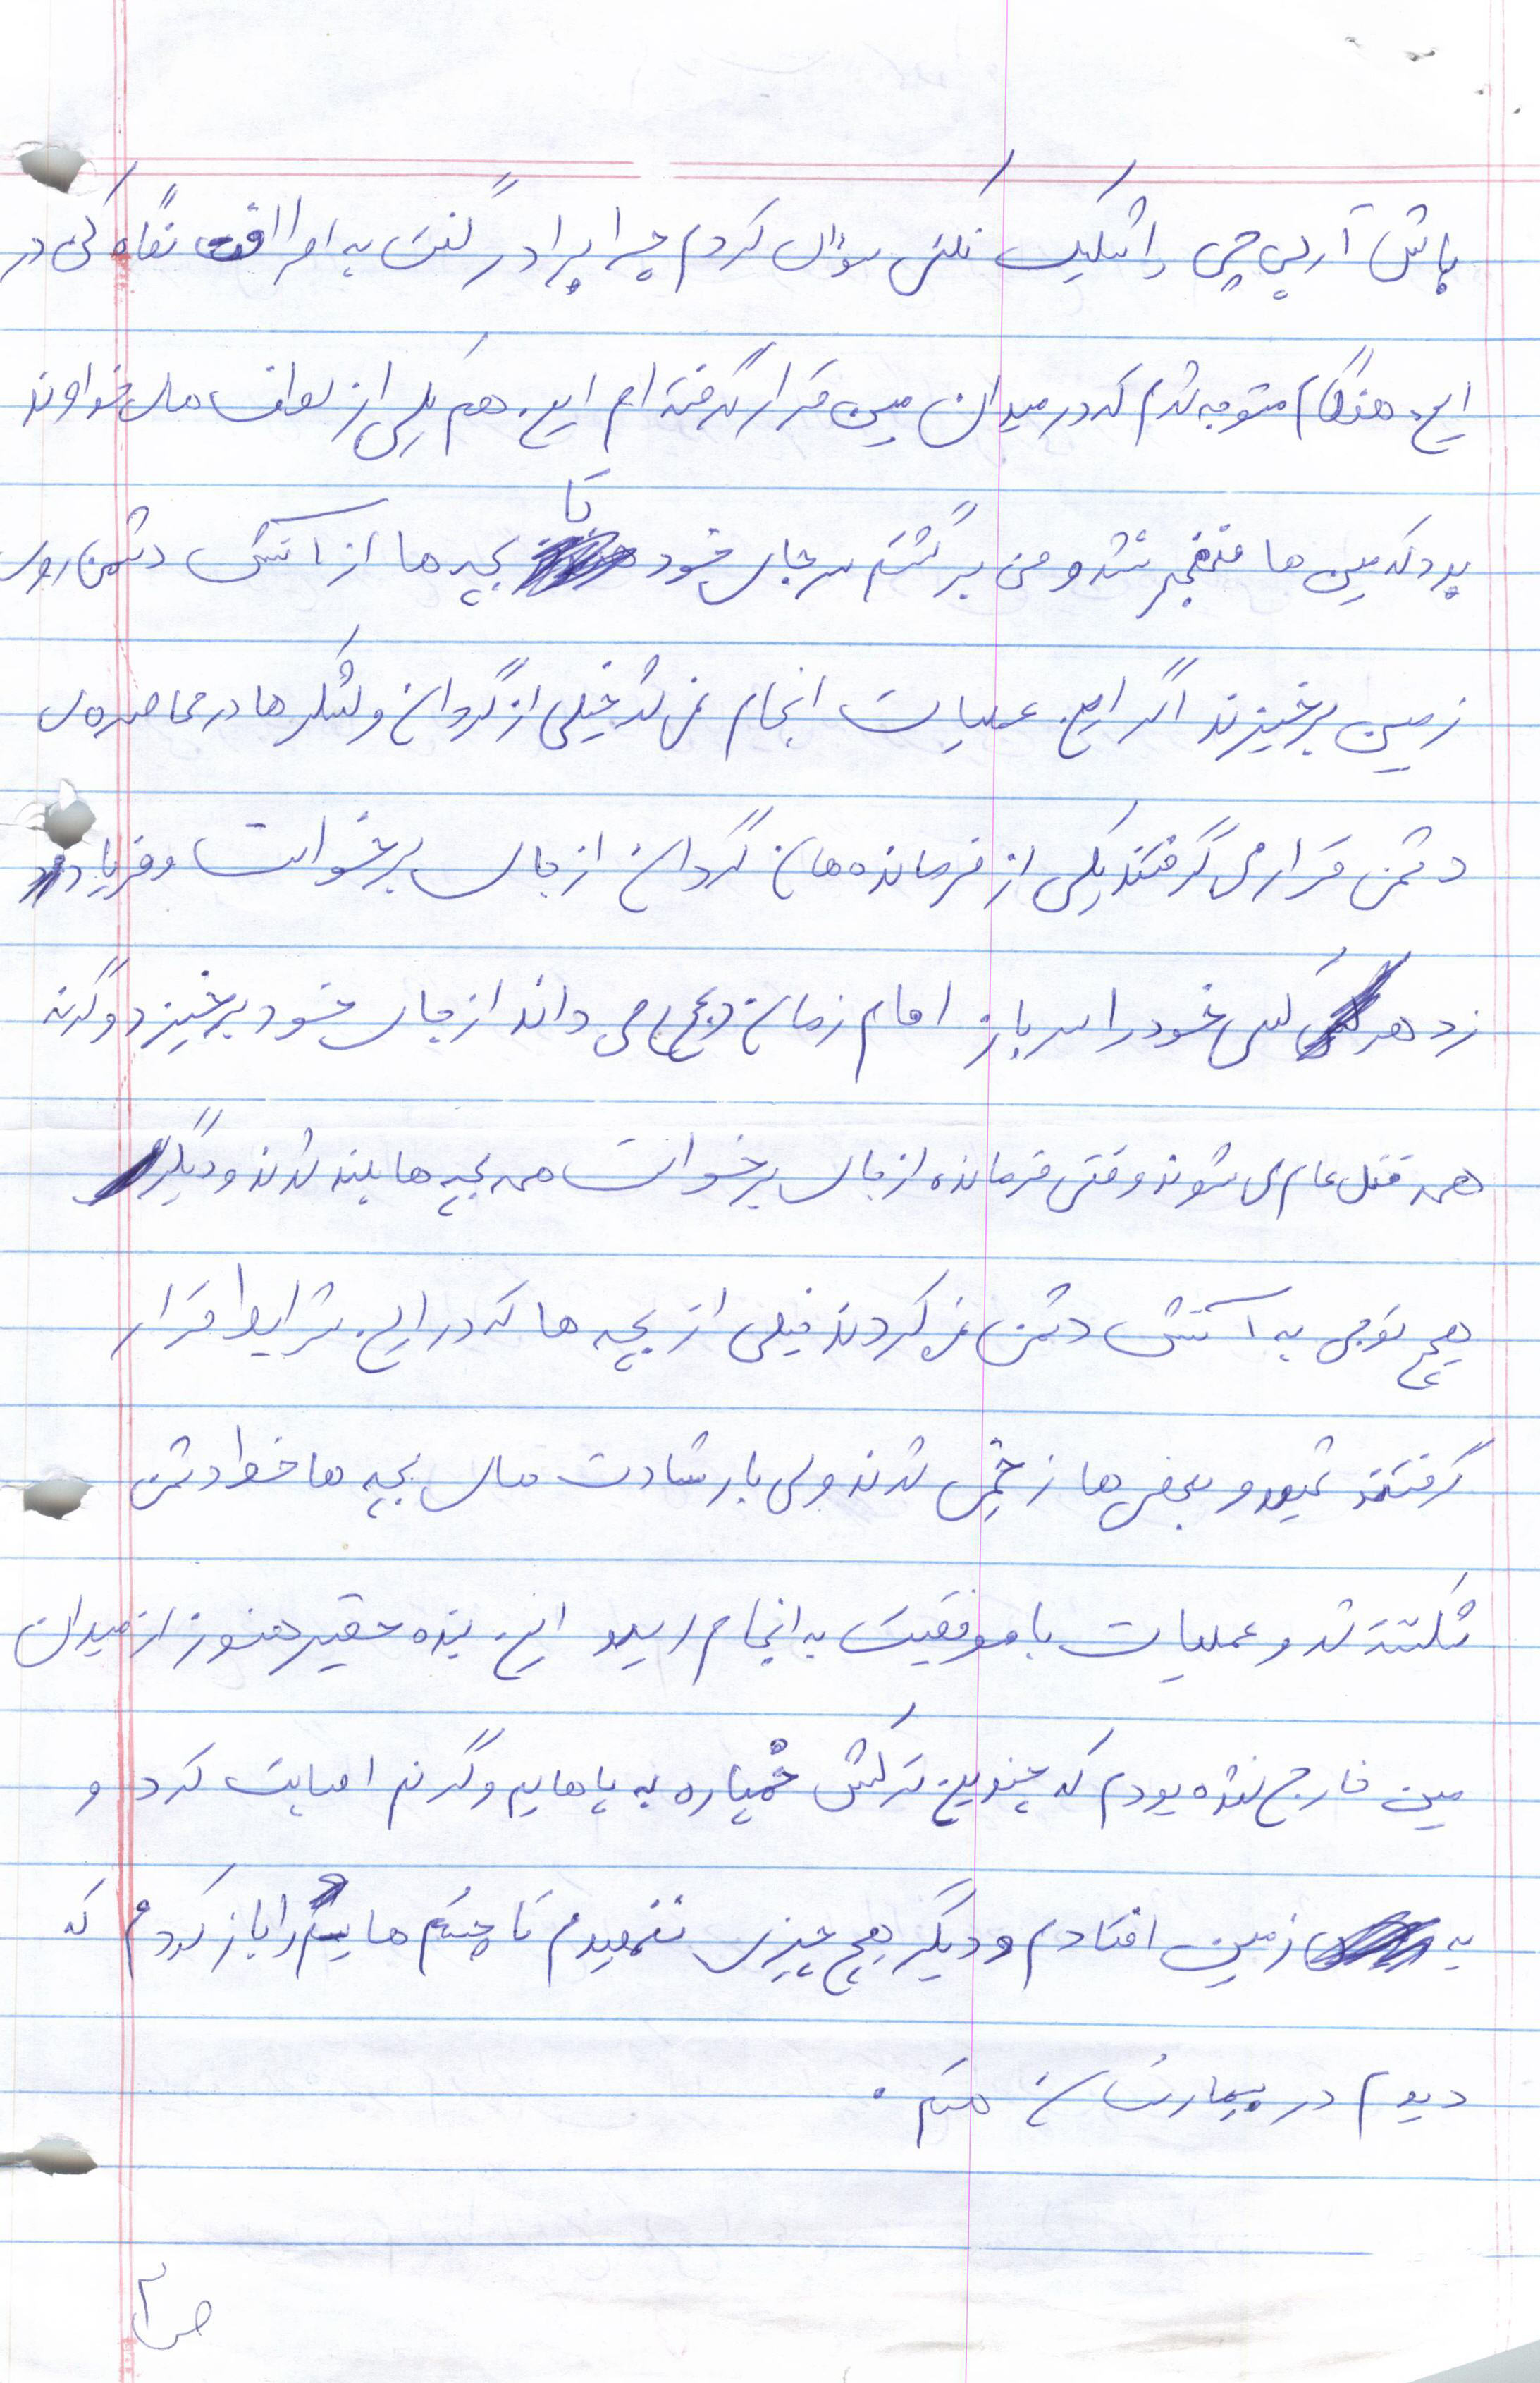 باش آرپی جی را شلیک نکنی سؤال کردم چرا برادر گفت به اطرافت نگاه کن در
این هنگام متوجه شدم که در میدان مین قرار گرفته ام این هم یکی از لطف های خداوند
بود که مین ها منفجر نشد و من برگشتم سر جای خود تا بچه ها از آتش دشمن روی
زمین برخیزند اگر این عملیات انجام نمی شد خیلی از گردان و لشکرها در محاصره ی
دشمن قرار می گرفتند یکی از فرمانده های گردان از جای برخواست و فریاد
زد هر کسی خود را سرباز امام زمان (عج) می داند از جای خود برخیزد وگرنه
همه قتل عام می شوند وقتی فرمانده از جای برخواست همه بچه ها بلند شدند و دیگر
هیچ توجهی به آتش دشمن نمی کردند خیلی از بچه ها که در این شرایط قرار
گرفتند شهید و بعضی ها زخمی شدند ولی با رشادت های بچه ها خط دشمن
شکسته شد و عملیات با موفقیت به انجام رسید این بنده حقیر هنوز از میدان
مین خارج نشده بودم که چندین ترکش خمپاره به پاهایم و گردنم اصابت کرد و
به زمین افتادم و دیگر هیچ چیزی نفهمیدم تا چشم هایم را باز کردم که
دیدم در بیمارستان هستم.
ص۲